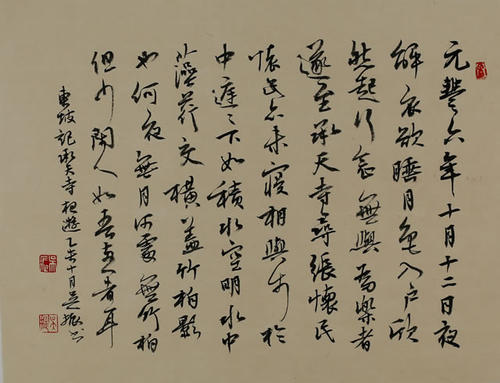 元豐六年十月十二日夜
解衣欲睡月色入户欣
然起行念無與為樂者
遂至承天寺尋張懷民
懷民亦未寢相與步於
中庭々下如積水空明水中
藻荇交橫蓋竹柏影
也何夜無月何處無竹柏
但少閑人如吾兩人者耳
東坡記承天寺夜遊乙十月振书